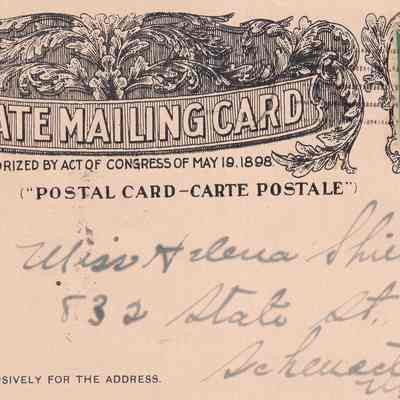 ATE MAILING CARD
ORIZED BY ACT OF CONGRESS OF MAY 19, 1898
("POSTAL CARD–CARTE POSTALE")
Miss Helena Shie
832 State St.
Schenect
SIVELY FOR THE ADDRESS.